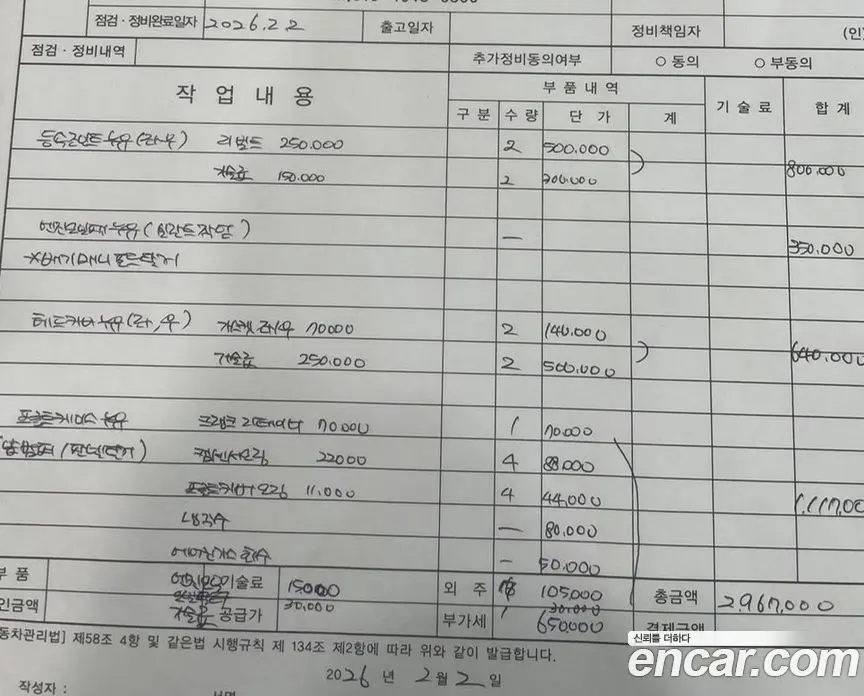 점검 · 정비완료일자 2026.2.2 출고일자 정비책임자 (인)
점검 · 정비내역 추가정비동의여부 ○ 동의 ○ 부동의
작 업 내 용 부 품 내 역 기 술 료 합 계
구 분 수 량 단 가 계
등속조인트 누유(좌,우) 리빌드 250.000 2 500.000
기술료 150.000 2 300.000 800.000
엔진오일팬 누유( 실란트작업 ) — 350.000
*배기매니폴드탈거
헤드커버 누유(좌,우) 가스켓 좌/우 70000 2 140.000
기술료 250.000 2 500.000 640.000
프론트케이스 누유 크랭크 리테이너 70.000 1 70.000
22000 4 88.000
프론트커버 오링 11.000 4 44,000 1,117,00
냉각수 — 80.000
에어컨가스 회수 - 50.000
부 품 기술료 15000 외 주 105,000 총금액 2.967,000
인금액 30,000 30.000
기술료 공급가 부가세 1 650,000 결제금액
동차관리법] 제58조 4항 및 같은법 시행규칙 제 134조 제2항에 따라 위와 같이 발급합니다.
신뢰를 더하다
encar.com
2026 년 2 월 2 일
작성자 : 서명